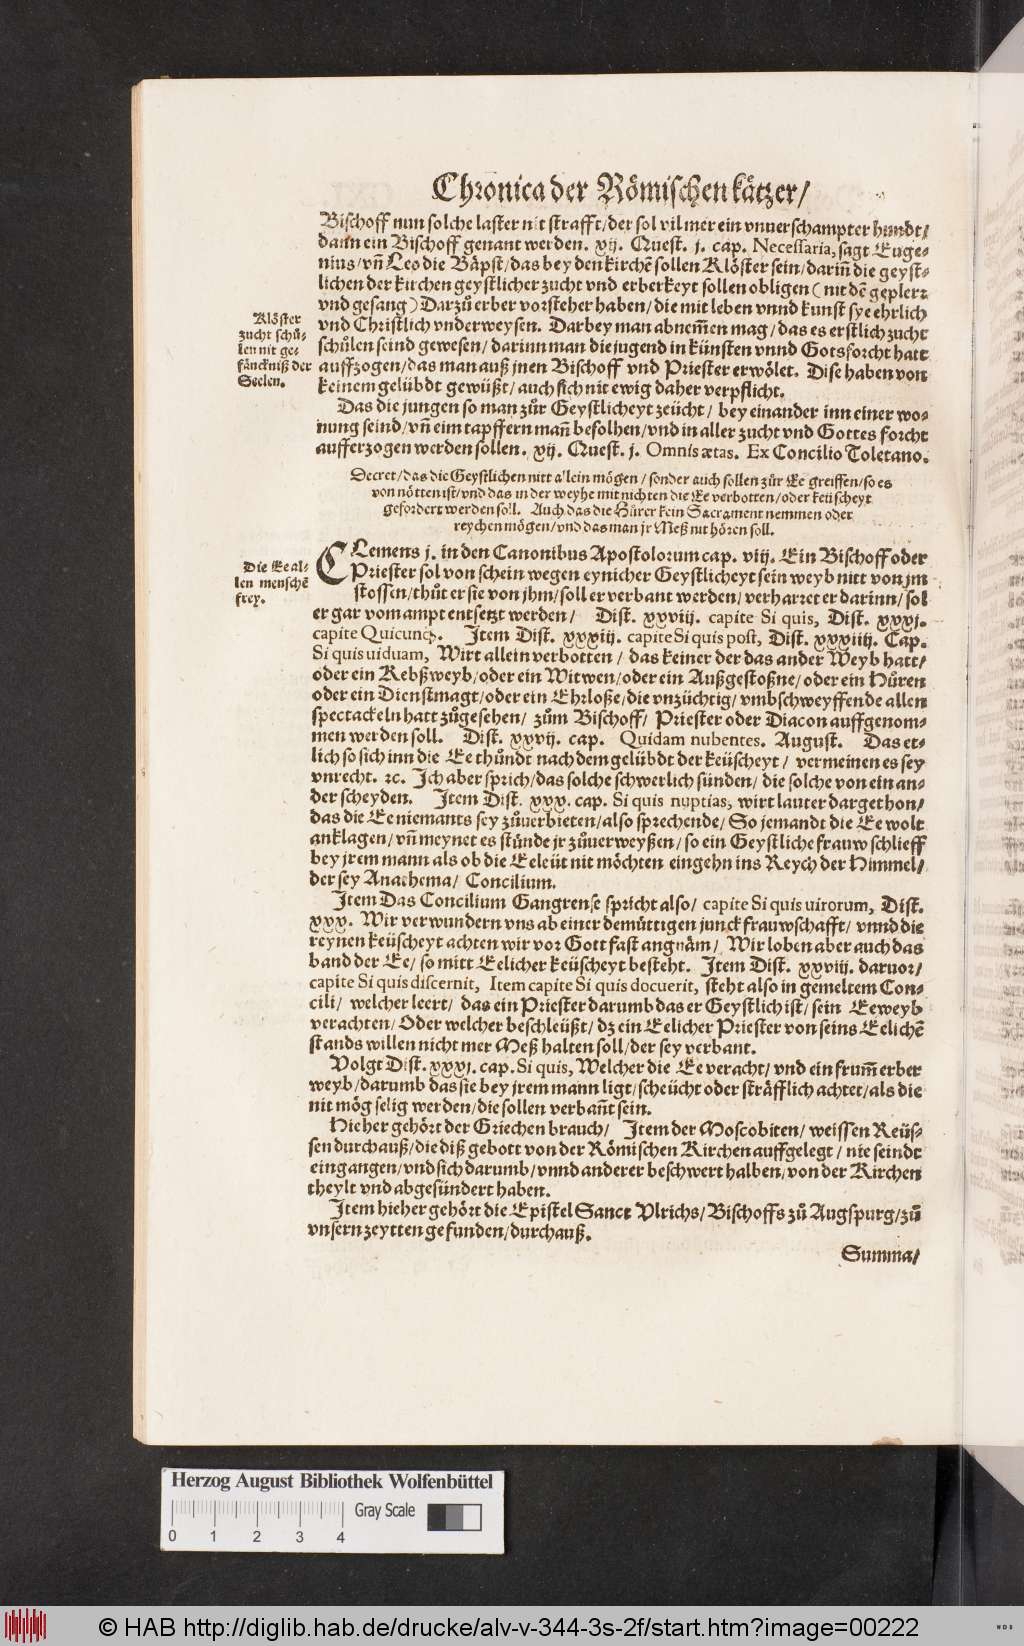 Chronica der Römischen kätzer/
Bischoff nun solche laster nit strafft/der sol vil mer ein vnuerschampter hundt/
dann ein Bischoff genant werden. xij. Quest. j. cap. Necessaria, sagt Euge-
nius/vñ Leo die Bäpst/das bey den kirchē sollen Klöster sein/dariñ die geyst-
lichen der kirchen geystlicher zucht vnd erberkeyt sollen obligen (nit dē geplerr
vnd gesang) Darzů erber vorsteher haben/die mit leben vnnd kunst sye ehrlich
vnd Christlich vnderweysen. Darbey man abnem̃en mag/das es erstlich zucht
schůlen seind gewesen/darinn man die jugend in künsten vnnd Gotsforcht hatt
auffzogen/das man auß jnen Bischoff vnd Priester erwölet. Dise haben von
keinem gelübdt gewüßt/auch sich nit ewig daher verpflicht.
Klöster
zucht schů-
len nit ge-
fänckniß der
Seelen.
Das die jungen so man zůr Geystlicheyt zeücht/bey einander inn einer wo-
nung seind/vñ eim tapffern mañ befolhen/vnd in aller zucht vnd Gottes forcht
aufferzogen werden sollen. xij. Quest. j. Omnis ætas. Ex Concilio Toletano.
Decret/das die Geystlichen nitt allein mögen/sonder auch sollen zůr Ee greiffen/so es
von nötten ist/vnd das in der weyhe mit nichten die Ee verbotten/oder keüscheyt
gefordert werden soll. Auch das die Hůrer kein Sacrament nemmen oder
reychen mögen/vnd das man jr Meß nit hören soll.
CLemens j. in den Canonibus Apostolorum cap. viij. Ein Bischoff oder
Priester sol von schein wegen eynicher Geystlicheyt sein weyb nitt von jm
stossen/thůt er sie von jhm/soll er verbant werden/verharret er darinn/sol
er gar vom ampt entsetzt werden/ Dist. xxviij. capite Si quis, Dist. xxxj.
capite Quicunq;. Item Dist. xxxiij. capite Si quis post, Dist. xxxiiij. Cap.
Si quis uiduam, Wirt allein verbotten/das keiner der das ander Weyb hatt/
oder ein Rebßweyb/oder ein Witwen/oder ein Außgestoßne/oder ein Hůren
oder ein Dienstmagt/oder ein Ehrloße/die vnzüchtig/vmbschweyffende allen
spectackeln hatt zůgesehen/ zům Bischoff/ Priester oder Diacon auffgenom-
men werden soll. Dist. xxvij. cap. Quidam nubentes. August. Das et-
lich so sich inn die Ee thůndt nach dem gelübdt der keüscheyt/ vermeinen es sey
vnrecht. ꝛc. Ich aber sprich/das solche schwerlich sünden/die solche von ein an-
der scheyden. Item Dist. xxx. cap. Si quis nuptias, wirt lauter dargethon/
das die Ee niemants sey zůuerbieten/also sprechende/So jemandt die Ee wolt
anklagen/vñ meynet es stünde jr zůuerweyßen/so ein Geystliche frauw schlieff
bey jrem mann als ob die Eeleüt nit möchten eingehn ins Reych der Himmel/
der sey Anathema/ Concilium.
Die Ee al-
len menschē
frey.
Item Das Concilium Gangrense spricht also/ capite Si quis uirorum, Dist.
xxx. Wir verwundern vns ab einer demüttigen junckfrauwschafft/vnnd die
reynen keüscheyt achten wir vor Gott fast angnäm/ Wir loben aber auch das
band der Ee/so mitt Eelicher keüscheyt besteht. Item Dist. xxviij. daruor/
capite Si quis discernit, Item capite Si quis docuerit, steht also in gemeltem Con-
cili/ welcher leert/ das ein Priester darumb das er Geystlich ist/ sein Eeweyb
verachten/Oder welcher beschleüßt/dz ein Eelicher Priester von seins Eelichē
stands willen nicht mer Meß halten soll/der sey verbant.
Volgt Dist. xxxj. cap. Si quis, Welcher die Ee veracht/vnd ein frum̃ erber
weyb/darumb das sie bey jrem mann ligt/scheücht oder sträfflich achtet/als die
nit mög selig werden/die sollen verbañt sein.
Hieher gehört der Griechen brauch/ Item der Moscobiten/weissen Reüs-
sen durchauß/die diß gebott von der Römischen Kirchen auffgelegt/nie seindt
eingangen/vnd sich darumb/vnnd anderer beschwert halben/von der Kirchen
theylt vnd abgesündert haben.
Item hieher gehört die Epistel Sanct Vlrichs/Bischoffs zů Augspurg/zů
vnsern zeytten gefunden/durchauß.
Summa/
Herzog August Bibliothek Wolfenbüttel
Gray Scale
0 1 2 3 4
© HAB http://diglib.hab.de/drucke/alv-v-344-3s-2f/start.htm?image=00222